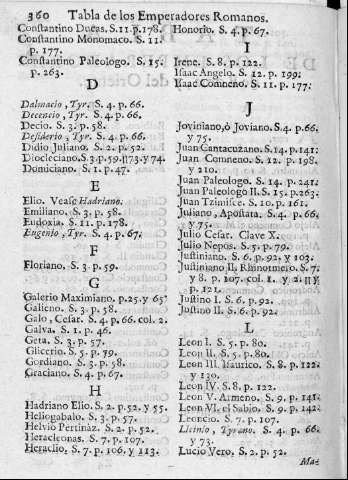 360 Tabla de los Emperadores Romanos.
Constantino Ducas. S. 11. p. 178.
Constantino Monomaco. S. 11.
p. 177.
Constantino Paleologo. S. 15.
p. 263.
D
Dalmacio, Tyr. S. 4. p. 66.
Decencio, Tyr. S. 4. p. 66.
Decio. S. 3. p. 58.
Desiderio, Tyr. S. 4. p. 66.
Didio Juliano. S. 2. p. 52.
Diocleciano. S. 3. p. 59. 73. y 74.
Domiciano. S. 1. p. 47.
E
Elio. Vease Hadriano.
Emiliano. S. 3. p. 58.
Eudoxia. S. 11. p. 178.
Eugenio, Tyr. S. 4. p. 67.
F
Floriano. S. 3. p. 59.
G
Galerio Maximiano. p. 25. y 65.
Galieno. S. 3. p. 58.
Galo, Cesar. S. 4. p. 66. col. 2.
Galva. S. 1. p. 46.
Geta. S. 3. p. 57.
Glicerio. S. 5. p. 79.
Gordiano. S. 3. p. 58.
Graciano. S. 4. p. 67.
H
Hadriano Elio. S. 2. p. 52. y 55.
Heliogabalo. S. 3. p. 57.
Helvio Pertinàz. S. 2. p. 52.
Heracleonas. S. 7. p. 107.
Heraclio. S. 7. p. 106. y 113.
Honorio. S. 4. p. 67.
I
Irene. S. 8. p. 122.
Isaac Angelo. S. 12. p. 199.
Isaac Comneno. S. 11. p. 177.
J
Joviniano, ò Joviano. S. 4. p. 66.
y 75.
Juan Cantacuzano. S. 14. p. 141.
Juan Comneno. S. 12. p. 198.
y 210.
Juan Paleologo. S. 14. p. 241.
Juan Paleologo II. S. 15. p. 263.
Juan Tzimisce. S. 10. p. 161.
Juliano, Apostata. S. 4. p. 66.
y 75.
Julio Cesar. Clave X.
Julio Nepos. S. 5. p. 79.
Justiniano. S. 6. p. 92. y 103.
Justiniano II, Rhinotmeto. S. 7.
y 8. p. 107. col. 1. y 2. y
p. 121.
Justino I. S. 6. p. 92.
Justino II. S. 6. p. 92.
L
Leon I. S. 5. p. 80.
Leon II. S. 5. p. 80.
Leon III. Isaurico. S. 8. p. 122.
y 130.
Leon IV. S. 8. p. 122.
Leon V. Armeno. S. 9. p. 141.
Leon VI. el Sabio. S. 9. p. 142.
Leoncio. S. 7. p. 107.
Licinio, Tyrano. S. 4. p. 66.
y 73.
Lucio Vero. S. 2. p. 52.
Ma-